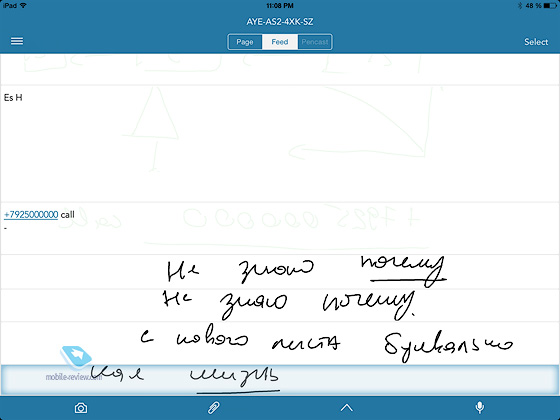 iPad 11:08 PM 48 %
AYE-AS2-4XK-SZ
Page Feed Pencast Select
Es H
+7925000000 call
-
Не знаю почему
Не знаю почему.
с нового листа буквально
mobile-review.com жизнь